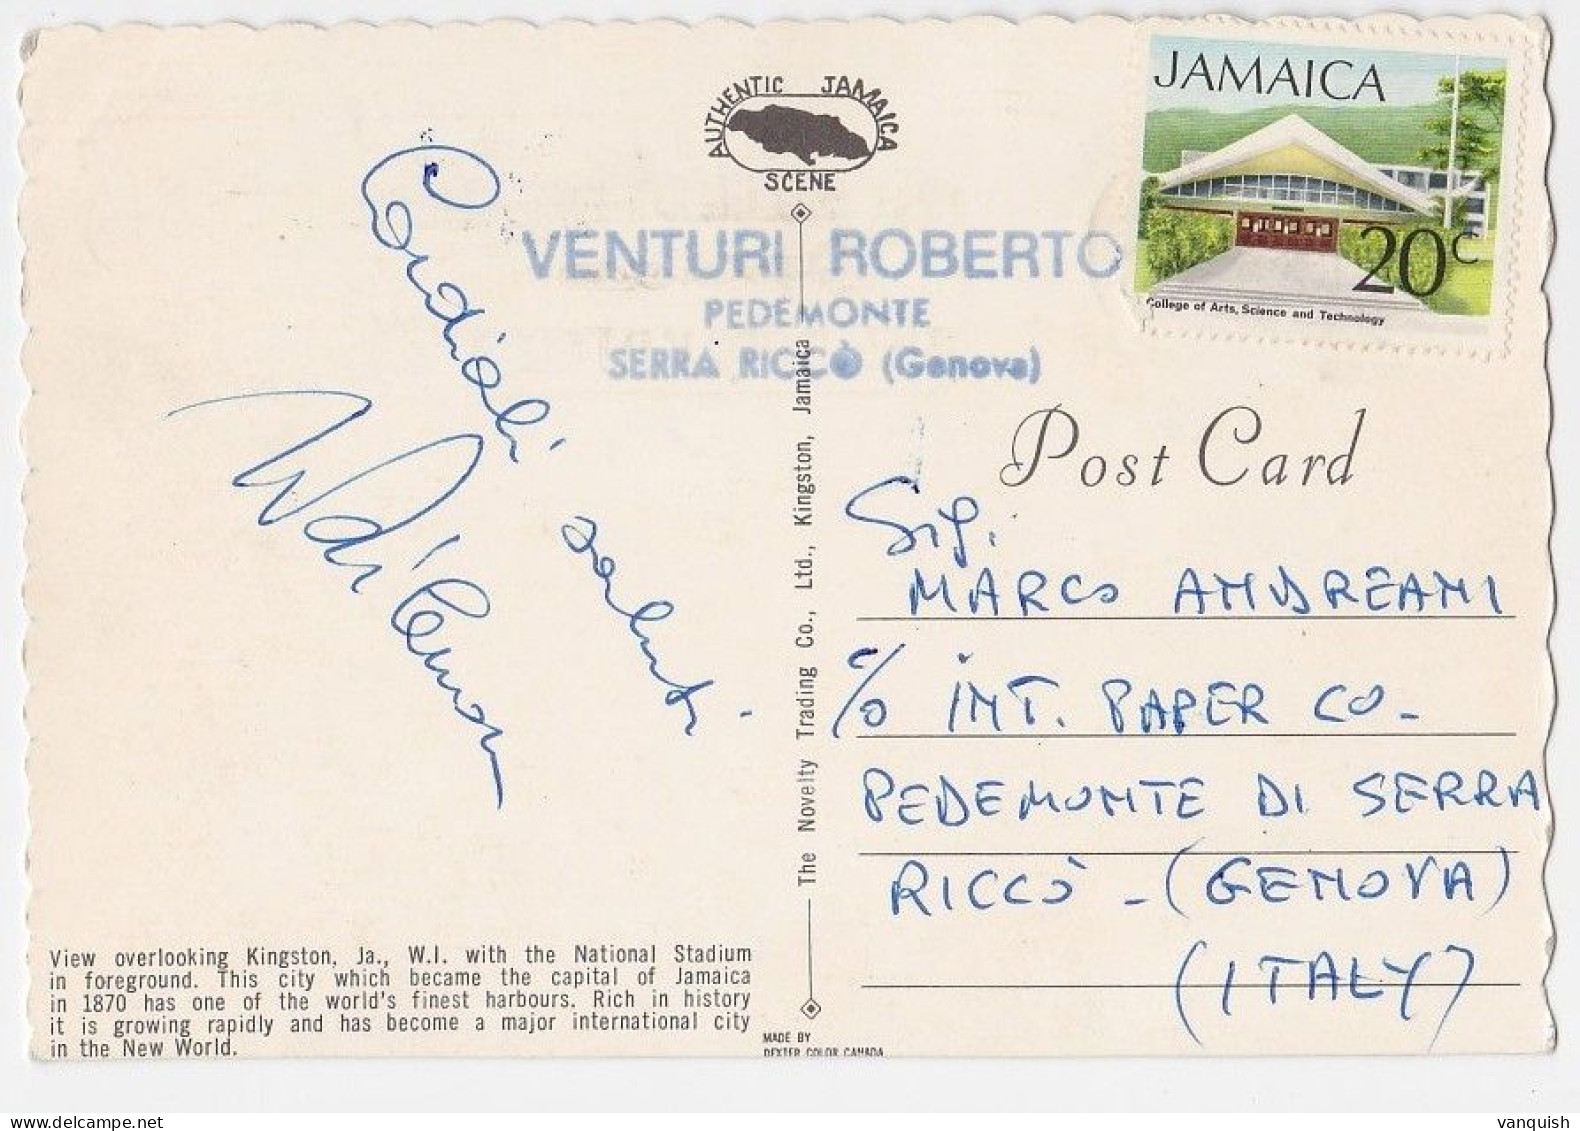 AUTHENTIC JAMAICA
SCENE
JAMAICA
20c
College of Arts, Science and Technology
VENTURI ROBERTO
PEDEMONTE
SERRA RICCÒ (Genova)
Post Card
Cordiali saluti
Sig.
MARCO ANDREANI
c/o INT. PAPER CO-
PEDEMONTE DI SERRA
RICCÒ - (GENOVA)
(ITALY)
The Novelty Trading Co., Ltd., Kingston, Jamaica
View overlooking Kingston, Ja., W.I. with the National Stadium
in foreground. This city which became the capital of Jamaica
in 1870 has one of the world's finest harbours. Rich in history
it is growing rapidly and has become a major international city
in the New World.
MADE BY
DEXTER COLOR CANADA
vanquish